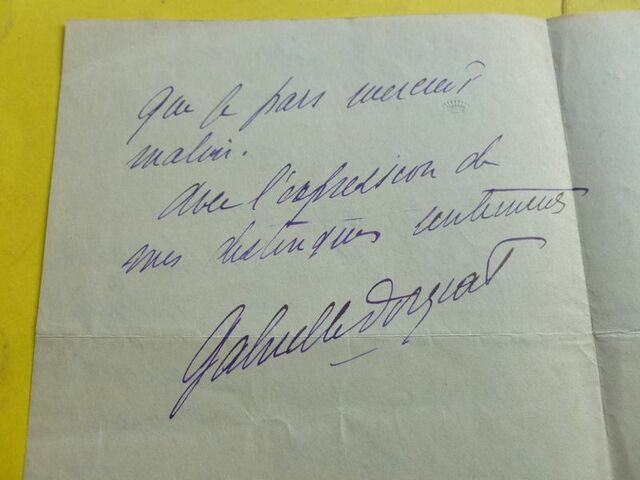 que je pars mercredi
matin.
Avec l'expression de
mes distingués sentiments
Gabrielle Dorziat